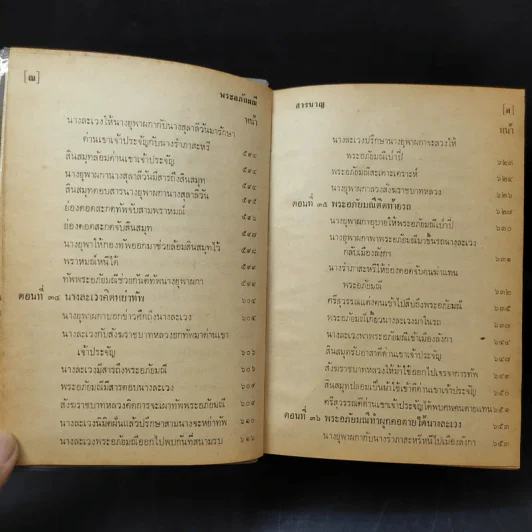 [๗]
พระอภัยมณี
หน้า
นางละเวงให้นางยุพาผกากับนางสุลาลีวันมารักษา
ด่านเขาเจ้าประจัญกับนางรำภาสะหรี ๕๙๔
สินสมุทล้อมด่านเขาเจ้าประจัญ
นางยุพาผกานางสุลาลีวันมีสารถึงสินสมุท
สินสมุทตอบสารนางยุพาผกานางสุลาลีวัน
ย่องตอดสะกดทัพจับสามพราหมณ์
ย่องตอดสะกดจับสินสมุท
นางยุพาให้กองทัพออกมาช่วยล้อมสินสมุทไว้ ๕๙๘
พราหมณ์หนีได้
ทัพพระอภัยมณีช่วยกันตีทัพนางยุพาผกา
ตอนที่ ๓๔ นางละเวงคิดหย่าทัพ ๖๐๔
นางยุพาผกาบอกข่าวศึกถึงนางละเวง
นางละเวงกับสังฆราชบาทหลวงยกทัพมาด่านเขา
เจ้าประจัญ ๖๐๖
นางละเวงมีสารถึงพระอภัยมณี
พระอภัยมณีมีสารตอบนางละเวง
สังฆราชบาทหลวงคิดการจะเผาทัพพระอภัยมณี ๖๐๙
นางละเวงนิมิตฝันแล้วปรึกษาสามนางจะหย่าทัพ ๖๑๐
นางละเวงพระอภัยมณีออกไปพบกันที่สนามรบ ๖๑๖
สารบาญ
หน้า
นางละเวงปรึกษานางยุพาผกาจะลวงให้
พระอภัยมณีเป่าปี่ ๖๒๓
พระอภัยมณีสะเดาะเคราะห์
นางยุพาผกาลวงสังฆราชบาทหลวง
ตอนที่ ๓๕ พระอภัยมณีติดท้ายรถ
นางยุพาผกาอุบายให้พระอภัยมณีเป่าปี่ ๖๓๐
นางยุพาผกาพาพระอภัยมณีมาขึ้นรถนางละเวง
กลับเมืองลังกา ๖๓๑
นางรำภาสะหรีให้ย่องตอดจับอนฆ่าแทน
พระอภัยมณี
ศรีสุวรรณแต่งคนเข้าไปสืบถึงพระอภัยมณี
พระอภัยมณีเกี้ยวนางละเวงมาในรถ
นางละเวงพาพระอภัยมณีเข้าเมืองลังกา
สินสมุทรับอาสาตีด่านเขาเจ้าประจัญ
สังฆราชบาทหลวงให้ม้าใช้ออกไปเจรจาการทัพ
สินสมุทปลอมเป็นม้าใช้เข้าตีด่านเขาเจ้าประจัญ ๖๕๐
ศรีสุวรรณตีด่านเขาเจ้าประจัญได้พบศพคนตายแทน ๖๕๑
ตอนที่ ๓๖ พระอภัยมณีทำผูกคอตายได้นางละเวง ๖๕๓
นางยุพาผกากับนางรำภาสะหรีหนีไปเมืองลังกา